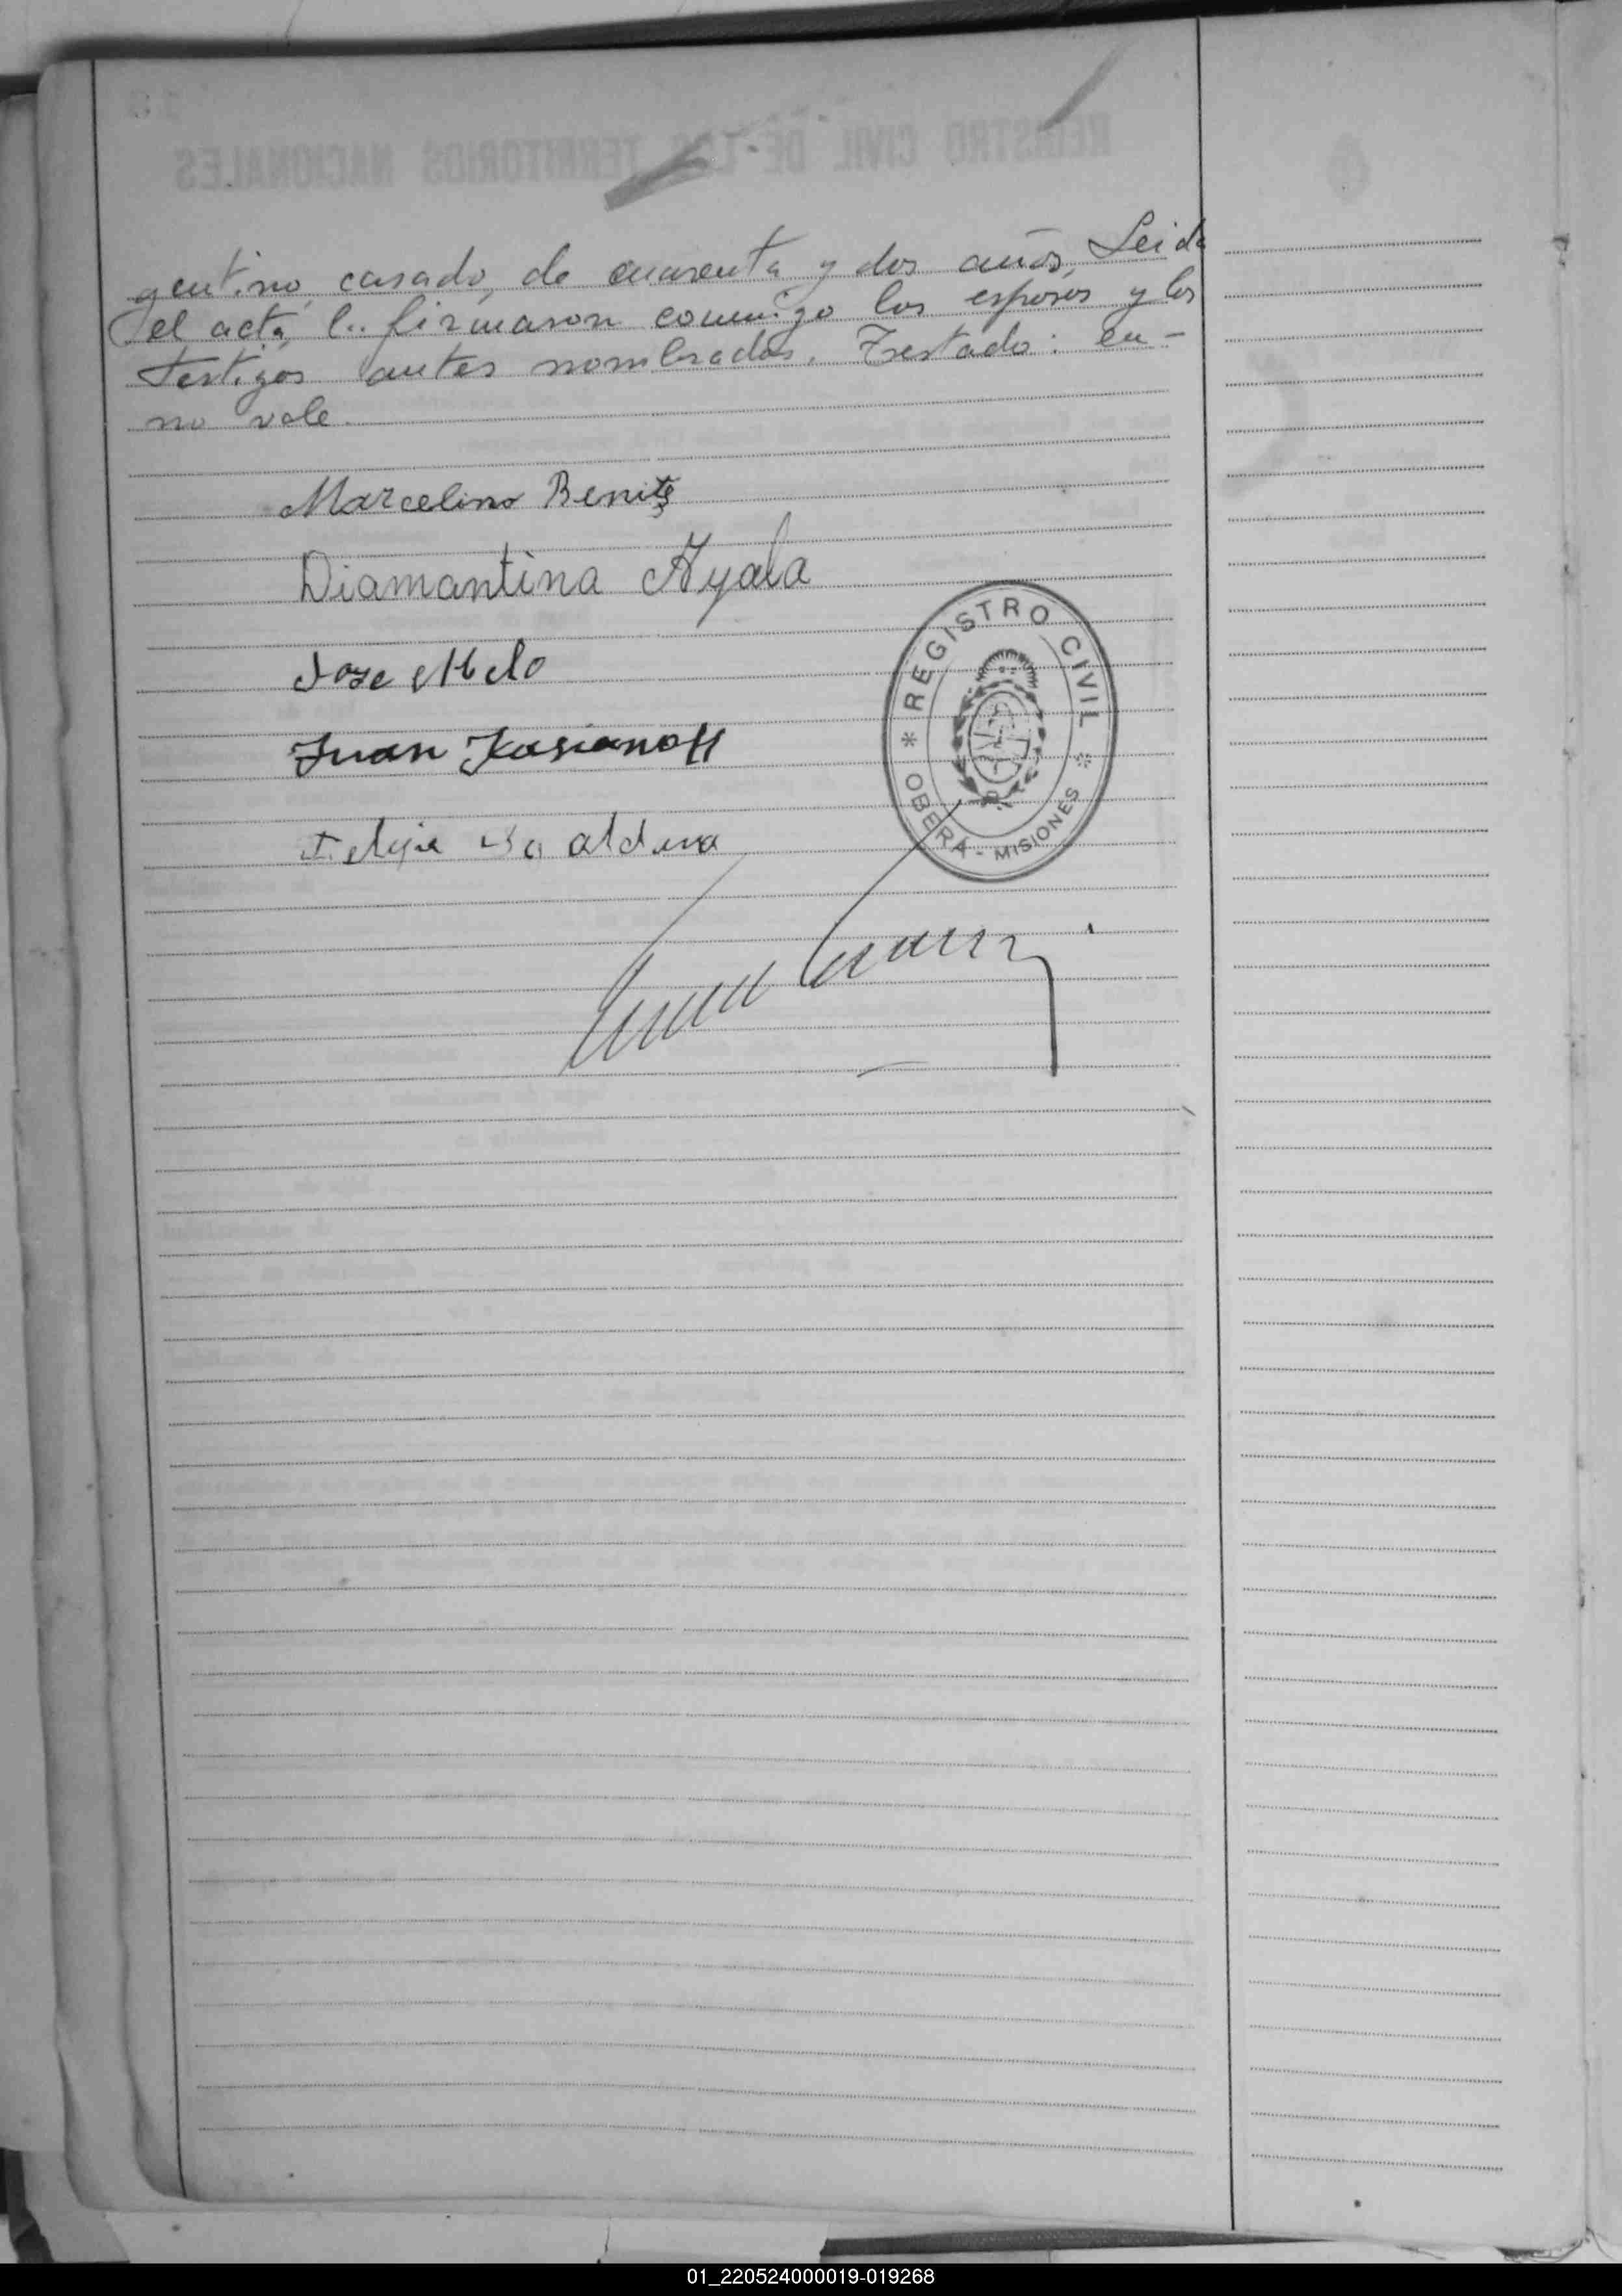 REGISTRO CIVIL DE LOS TERRITORIOS NACIONALES
gentino, casado, de cuarenta y dos años, Leida
el acta, la firmaron conmigo los esposos y los
testigos antes nombrados. Testado: en-
no vale.
Marcelino Benitez
Diamantina Ayala
Jose Melo
Juan Kasianoff
REGISTRO CIVIL
OBERÁ - MISIONES
01_220524000019-019268